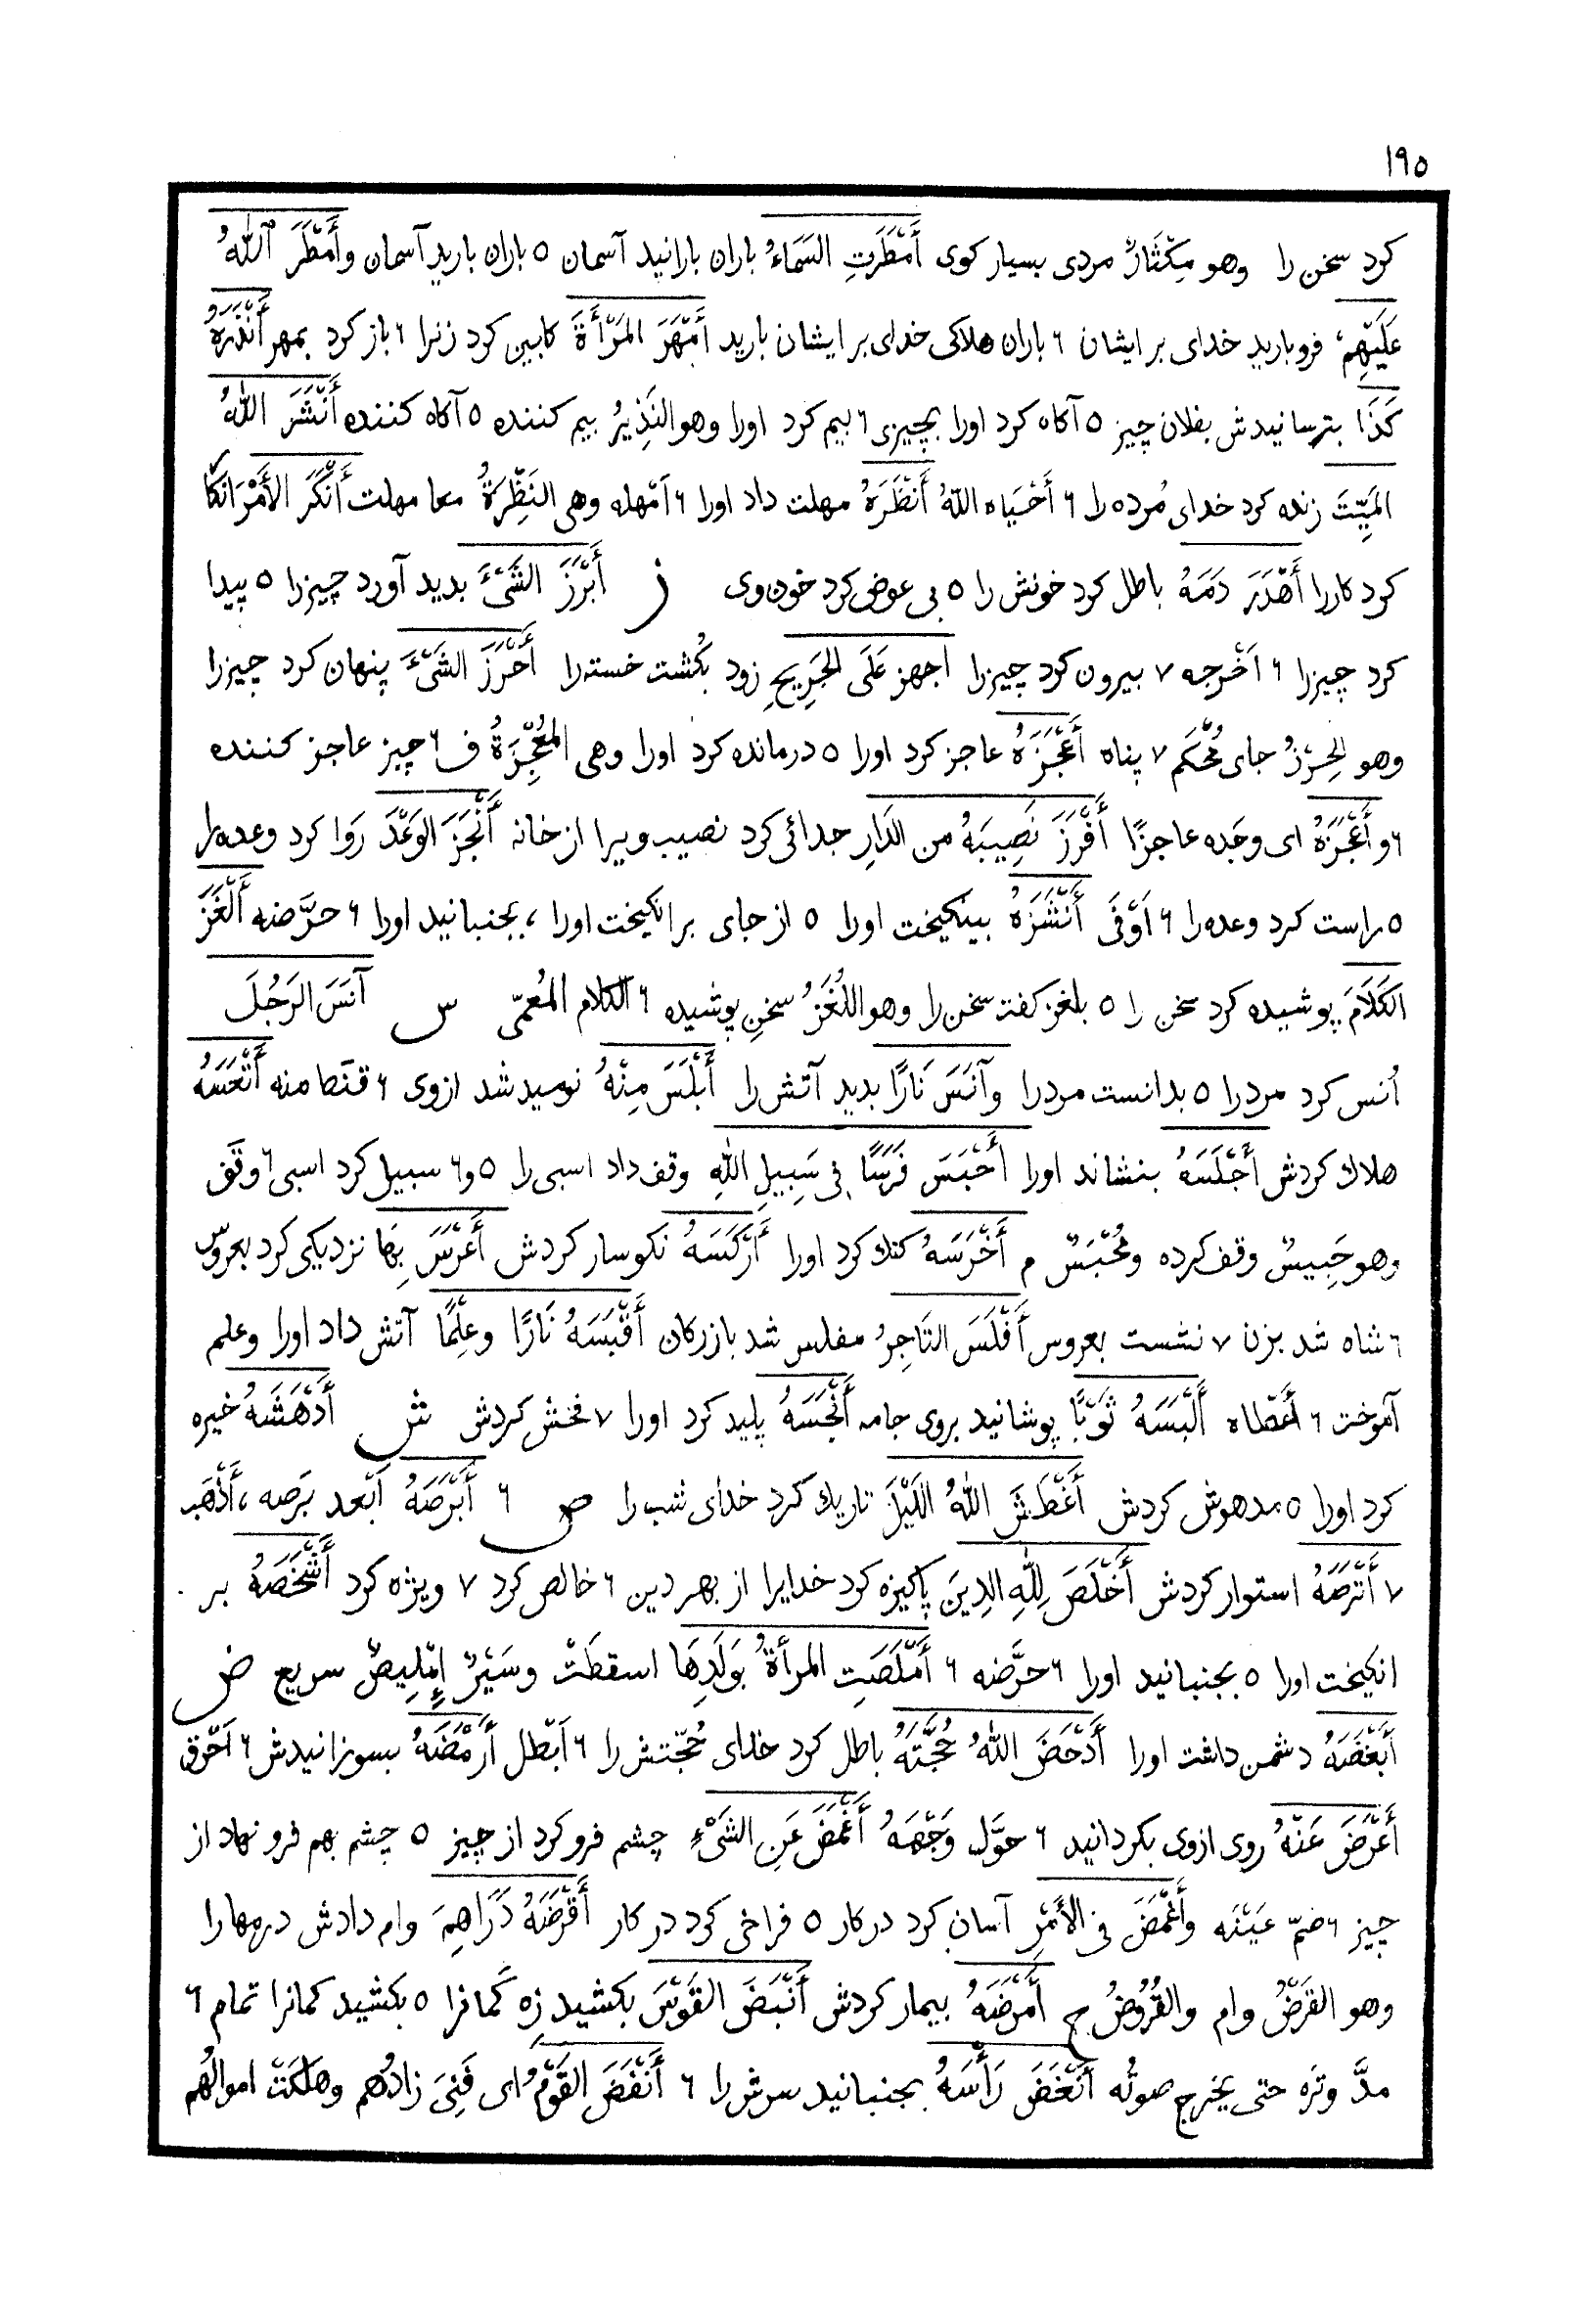 ١٩٥
كرد سخن را وهو مِكْثَارٌ مردى بسيار كوى أَمْطَرَتِ السَّمَاءُ باران بارانيد آسمان ٥ باران باريد آسمان وأَمْطَرَ اللهُ
عَلَيْهِمْ فرو باريد خداى بر ايشان ٦ باران هلاكى خداى بر ايشان باريد أَمْهَرَ المَرْأَةَ كابين كرد زنرا ٦ باز كرد بمهر أَنْذَرَهُ
كَذَا بترسانيدش بفلان چيز ٥ آكاه كرد اورا بچيزى ٦ بيم كرد اورا وهو النَذِيرُ بيم كننده ٥ آكاه كننده أَنْشَرَ اللهُ
المَيِّتَ زنده كرد خداى مُرده را ٦ أَحْيَاه اللهُ أَنْظَرَهُ مهلت داد اورا ٦ اَمْهله وهى النَظِرَةُ معا مهلت أَنْكَرَ الأَمْرَ انكا
كرد كاررا أَهْدَرَ دَمَهُ باطل كرد خونش را ٥ بى عوض كرد خون وى ز أَبْرَزَ الشَىْءَ بديد آورد چيزرا ٥ پيدا
كرد چيزرا ٦ اَخْرجه ٧ بيرون كرد چيزرا اجهز عَلَى الجَرِيحِ زود بكُشت خسته را أَحْرَزَ الشَىْءَ پنهان كرد چيزرا
وهو الحِرْزُ جاى مُحْكَم ٧ پناه أَعْجَزَهُ عاجز كرد اورا ٥ درمانده كرد اورا وهى المُعْجِزَةُ ف ٦ چيز عاجز كننده
٦ وأَعْجَزَهُ اى وجَده عاجزًا أَفْرَزَ نَصِيبَهُ من الدَارِ جدائى كرد نصيب ويرا از خانه أَنْجَزَ الوَعْدَ رَوا كرد وعده را
٥ راست كرد وعده را ٦ اَوْفَى أَنْشَزَهُ بينكيخت اورا ٥ از جاى بر انكيخت اورا ، بجنبانيد اورا ٦ حرَّضه أَلْغَزَ
الكَلَامَ پوشيده كرد سخن را ٥ بلغز كفت سخن را وهو اللُغَزُ سخنِ پوشيده ٦ الكلام المُعمّى س آنَسَ الرَجُلَ
اُنس كرد مردرا ٥ بدانست مردرا وآنَسَ نَارًا بديد آتش را أَبْلَسَ مِنْهُ نوميد شد ازوى ٦ قنَط منه أَتْعَسَهُ
هلاك كردش أَجْلَسَهُ بنشاند اورا أَحْبَسَ فَرَسًا فِى سَبِيلِ اللهِ وقف داد اسبى را ٥ و٦ سبيل كرد اسبى ٦ وقَف
وهو حَبِيسٌ وقف كرده ومُحْبَسٌ م أَخْرَسَهُ كنك كرد اورا أَرْكَسَهُ نكوسار كردش أَعْرَسَ بِهَا نزديكى كرد بعروس
٦ شاه شد بزن ٧ نشست بعروس أَفْلَسَ التَاجِرُ مفلس شد بازركان أَقْبَسَهُ نَارًا وعِلْمًا آتش داد اورا وعلم
آموخت ٦ أَعْطاه أَلْبَسَهُ ثَوْبًا پوشانيد بروى جامه أَنْجَسَهُ پليد كرد اورا ٧ فخش كردش ش أَدْهَشَهُ خيره
كرد اورا ٥ مدهوش كردش أَغْطَشَ اللهُ اللَيْلَ تاريك كرد خداى شب را ص ٦ أَبْرَصَهُ اَبْعد بَرَصه ، أَذْهَب
٧ أَتْرَصَهُ استوار كردش أَخْلَصَ لِلّٰهِ الدِينَ پاكيزه كرد خدايرا از بهر دين ٦ خالص كرد ٧ ويژه كرد أَشْخَصَهُ بر
انكيخت اورا ٥ بجنبانيد اورا ٦ حرَّضه ٦ أَمْلَصَتِ المرأةُ بوَلَدِهَا اسقطَتْ وسَيْرٌ إِمْلِيصٌ سريع ض
أَبْغَضَهُ دشمن داشت اورا أَدْحَضَ اللهُ حُجَّتَهُ باطل كرد خداى حُجّتش را ٦ اَبْطل أَرْمَضَهُ بسوزانيدش ٦ اَحْرق
أَعْرَضَ عَنْهُ روى ازوى بكردانيد ٦ حوَّل وَجْهَهُ أَغْمَضَ عَنِ الشَىْءِ چشم فرو كرد از چيز ٥ چشم بهم فرو نهاد از
چيز ٦ ضمّ عَيْنَه وأَغْمَضَ فى الأَمْرِ آسان كرد در كار ٥ فراخى كرد در كار أَقْرَضَهُ دَرَاهِمَ وام دادش درمهارا
وهو القَرْضُ وام والقُرُوضُ ج أَمْرَضَهُ بيمار كردش أَنْبَضَ القَوْسَ بكشيد زه كمانرا ٥ بكشيد كمانرا تمام ٦
مدَّ وترَه حتى يخرج صوتُه أَنْغَضَ رَأْسَهُ بجنبانيد سرش را ٦ أَنْفَضَ القَوْمُ اى فَنِىَ زادُهم وهلكَتْ اموالُهم